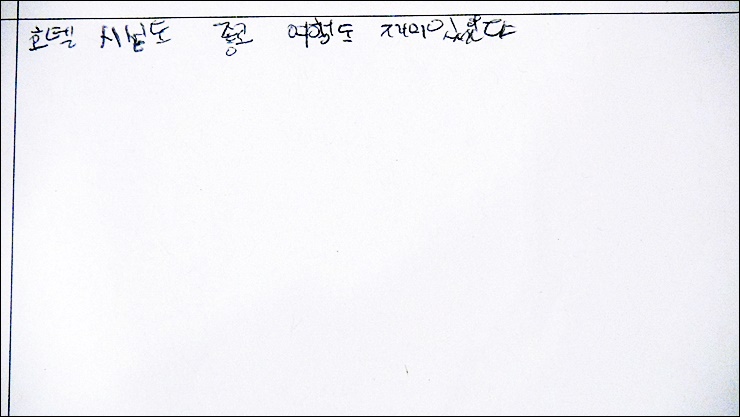 호텔 시설도 좋고 여행도 재미있었다